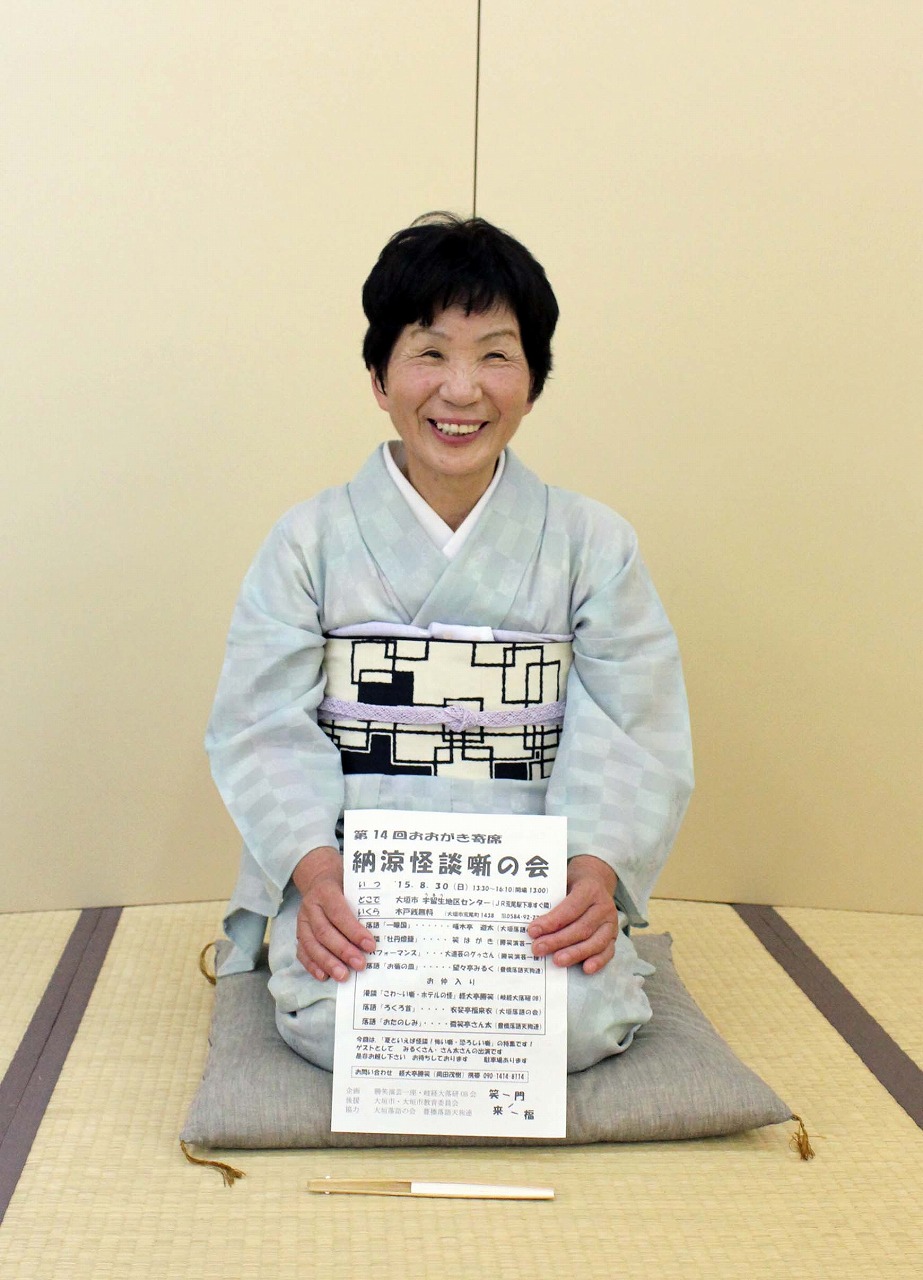 第14回おおがき寄席
納涼怪談噺の会
いつ '15.8.30(日)13:30~16:10(開場13:00)
どこで 大垣市 宇留生地区センター(JR荒尾駅下車すぐ龍
いくら 木戸銭無料 (大垣市荒尾町1438 ☎0584-92-
落語「一眼国」・・・・・・ 亭 遊木(大垣落語
「牡丹燈籠」・・・・ 笑 は が き(勝笑演芸一
パフォーマンス」・・・大道芸のグゥさん(勝笑演芸一座
落語「お菊の皿」・・・・・留々亭みるく(豊橋落語天狗連)
お 仲 入 り
漫談「こわ~い噺・ホテルの怪」経大亭勝笑(岐経大落研OB)
落語「ろくろ首」・・・・衣笑亭福来衣(大垣落語の会)
落語「おたのしみ」・・・・微笑亭さん太(豊橋落語天狗連)
今回は、「夏といえば怪談!怖い噺・恐ろしい噺」の特集です!
ゲストとして みるくさん・さん太さんの出演です
是非お越し下さい お待ちしております 駐車場あります
お問い合わせ 経大亭勝笑(岡田茂樹)携帯 090-1414-8114
企画 勝笑演芸一座・岐経大落研OB会
後援 大垣市・大垣市教育委員会
協力 大垣落語の会 豊橋落語天狗連
笑 門
来 福